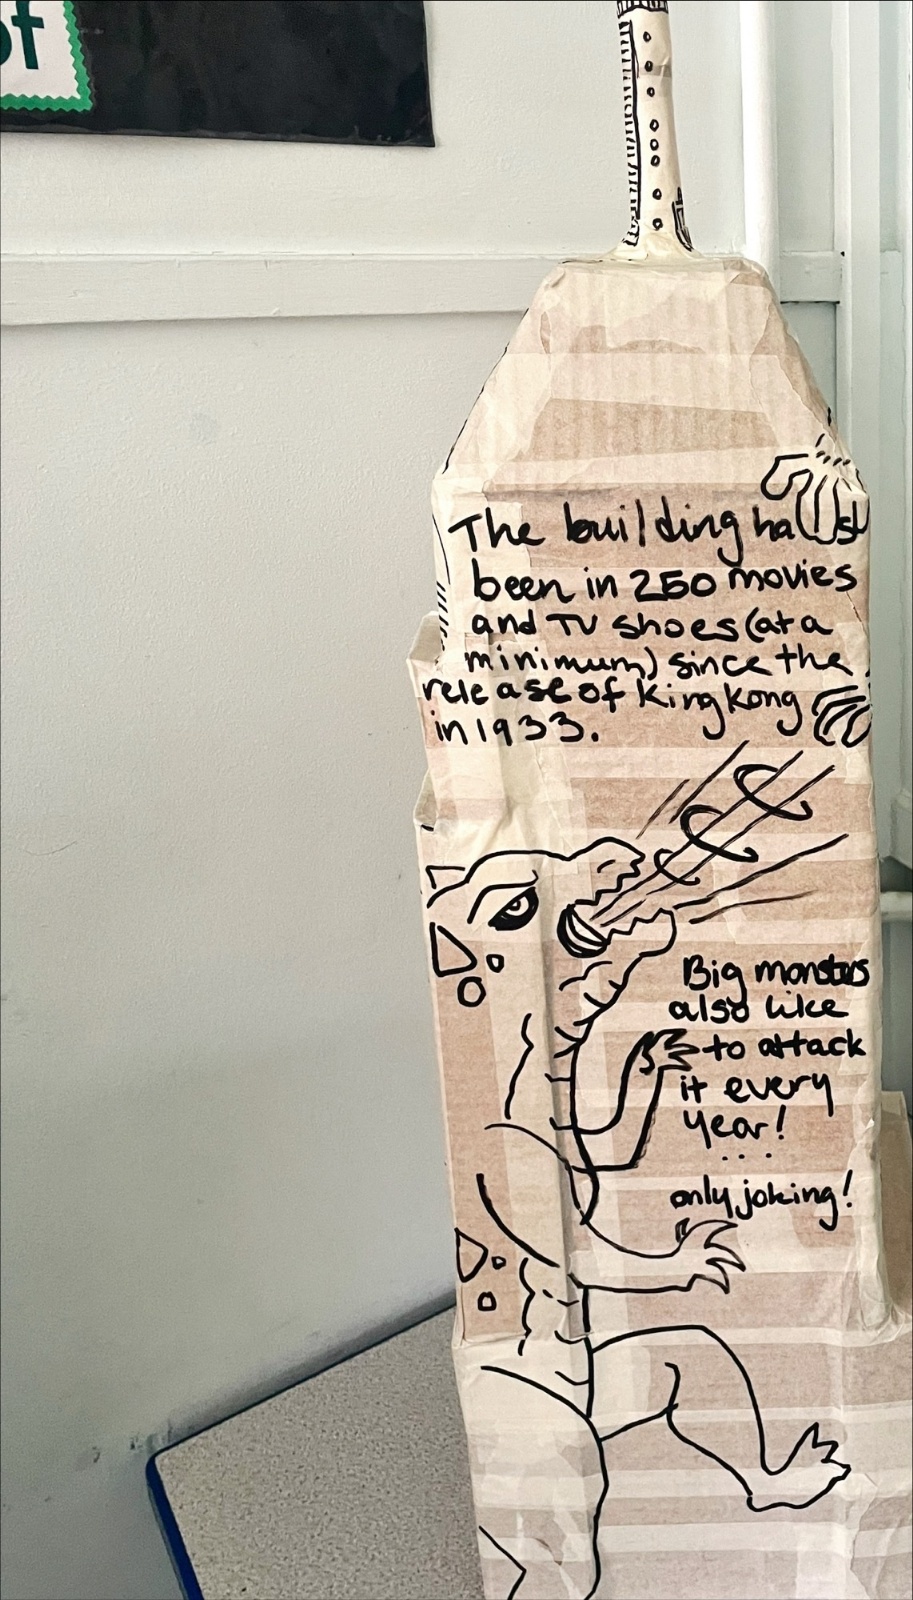 of
The building has
been in 250 movies
and TV shoes (at a
minimum) since the
release of King Kong
in 1933.
Big monsters
also like
to attack
it every
year!
...
only joking!